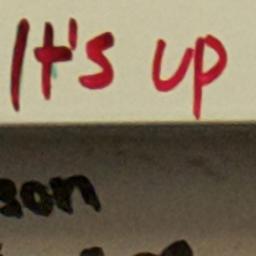 It's up
son